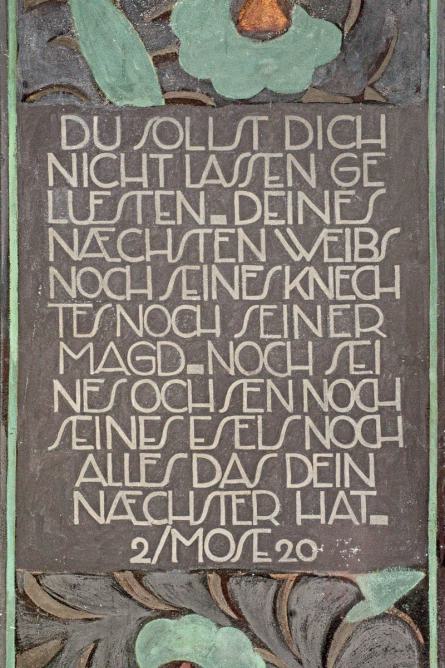 DU SOLLST DICH
NICHT LASSEN GE
LUESTEN_DEINES
NÆCHSTEN WEIBS
NOCH SEINES KNECH
TES NOCH SEINER
MAGD_NOCH SEI
NES OCHSEN NOCH
SEINES ESELS NOCH
ALLES DAS DEIN
NÆCHSTER HAT_
2/MOSE 20